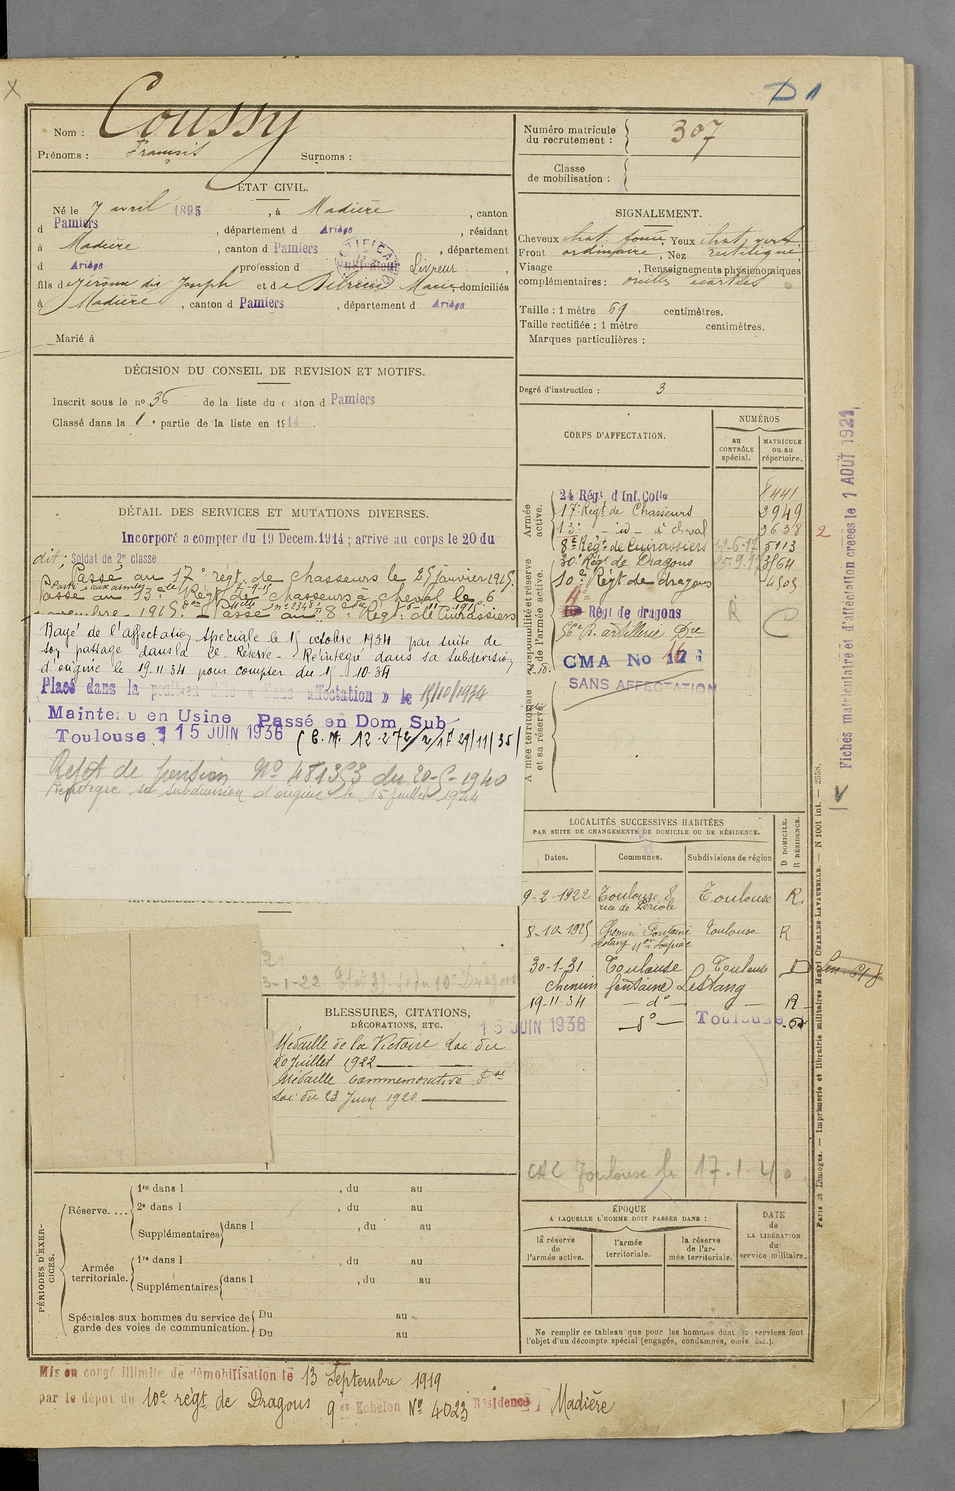 D 1
Nom : Coussy
Prénoms : François Surnoms :
ÉTAT CIVIL.
Né le 7 avril 1895, à Madière, canton
d Pamiers, département d Ariège, résidant
à Madière, canton d Pamiers, département
d Ariège, profession d Livreur,
fils de Jérome dit Joseph et de Marie domiciliés
à Madière, canton d Pamiers, département d Ariège
Marié à
DÉCISION DU CONSEIL DE REVISION ET MOTIFS.
Inscrit sous le no 36 de la liste du canton d Pamiers
Classé dans la 1e partie de la liste en 1914.
DÉTAIL DES SERVICES ET MUTATIONS DIVERSES.
Incorporé a compter du 19 Decem. 1914 ; arrive au corps le 20 du
dit ; Soldat de 2e classe
Passé au 17e régt de chasseurs le 25 janvier 1915.
Passé au 13e Régt de chasseurs à cheval le 6
novembre 1915. Passé au 8e Régt de Cuirassiers
Rayé de l'affectation spéciale le 15 octobre 1934 par suite de
son passage dans la 2e Réserve - Réintégré dans sa subdivision
d'origine le 19.11.34 pour compter du 15.10.34
Placé dans la position dite « Sans affectation » le 15/10/1934
Maintenu en Usine Passé en Dom. Sub.
Toulouse, 15 JUIN 1936 (C.M. 12.272/2/1F 29/11/35)
Rejet de pension No 481353 du 20-5-1940
Réintégré sa subdivision d'origine le 15 juillet 1924
3-1-22 10e Dragons
BLESSURES, CITATIONS,
DÉCORATIONS, ETC.
Médaille de la Victoire loi du
20 Juillet 1922
Médaille commémorative Fse
Loi du 23 Juin 1920
PÉRIODES D'EXERCICES.
Réserve....
1re dans l , du au
2e dans l , du au
Supplémentaires dans l , du au
Armée territoriale.
1re dans l , du au
Supplémentaires dans l , du au
Spéciales aux hommes du service de garde des voies de communication.
Du au
Du au
Mis en congé illimité de démobilisation le 13 Septembre 1919
par le dépot du 10e régt de Dragons 9er Echelon No 4023 Résidence Madière
Numéro matricule du recrutement : 307
Classe de mobilisation :
SIGNALEMENT.
Cheveux chat. foncé, Yeux chat. vert
Front ordinaire, Nez rectiligne
Visage , Renseignements physionomiques
complémentaires : oreilles écartées
Taille : 1 mètre 69 centimètres.
Taille rectifiée : 1 mètre centimètres.
Marques particulières :
Degré d'instruction : 3
CORPS D'AFFECTATION.
NUMÉROS
au CONTRÔLE spécial.
MATRICULE ou au répertoire.
Armée active.
24 Régt d'Inf. Colle 8441
17e Régt de Chasseurs 2949
13e - id - à cheval 3638
8e Régt de Cuirassiers 12-6-17 5113
30e Régt de Dragons 25.9.17 3864
Disponibilité et réserve de l'armée active.
10e Régt de dragons 4505
Régt de dragons
56e R. artillerie Dre
CMA No 17
SANS AFFECTATION
R
C
Armée territoriale et sa réserve.
LOCALITÉS SUCCESSIVES HABITÉES
PAR SUITE DE CHANGEMENTS DE DOMICILE OU DE RÉSIDENCE.
Dates. Communes. Subdivisions de région
D DOMICILE.
R RÉSIDENCE.
9-2-1922 Toulouse 8 rue de Périole Toulouse R.
8-10-1925 Chemin Fontaine Lestang Toulouse R
30-1-31 Toulouse Toulouse D
Chemin fontaine Lestang
19-11-34 - do - R
15 JUIN 1936 - do - Toulouse
Toulouse le 17.1.40
ÉPOQUE
A LAQUELLE L'HOMME DOIT PASSER DANS :
la réserve de l'armée active.
l'armée territoriale.
la réserve de l'armée territoriale.
DATE de LA LIBÉRATION du service militaire.
Ne remplir ce tableau que pour les hommes dont les services font
l'objet d'un décompte spécial (engagés, condamnés, omis, etc.).
Fiches matriculaire et d'affectation créées le 1 AOUT 1921,
Paris et Limoges. — Imprimerie et librairie militaires Henri CHARLES-LAVAUZELLE. — N 1001 int. — 2558.